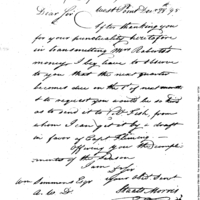 Dear Sir West Point Dec 29 98
After thanking you
for your punctuality heretofore
in transmitting Mrs Roberts
money I beg leave to observe
to you that the next quarter
becomes due on the 1 of next month
& to request you will be so kind
as to send it to Fish, from
whom I can get it by a draft
in favor of Capt Fleming —
Offering you the compli-
ments of the Season
I am Sir
Your Obt Servt
Staats Morris
Wm Simmons Esqr
A. C. D.